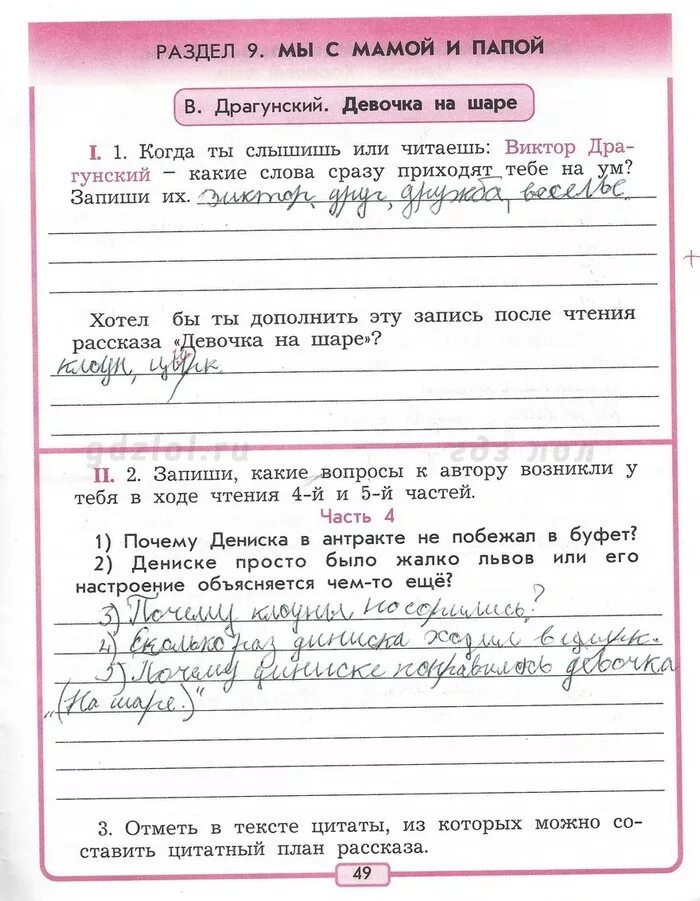 РАЗДЕЛ 9. МЫ С МАМОЙ И ПАПОЙ
В. Драгунский. Девочка на шаре
I. 1. Когда ты слышишь или читаешь: Виктор Дра-
гунский – какие слова сразу приходят тебе на ум?
Запиши их. виктор, друг, дружба, веселье.
+
Хотел бы ты дополнить эту запись после чтения
рассказа «Девочка на шаре»?
клоун, цырк.
gdzlol.ru гдз лол
II. 2. Запиши, какие вопросы к автору возникли у
тебя в ходе чтения 4-й и 5-й частей.
Часть 4
1) Почему Дениска в антракте не побежал в буфет?
2) Дениске просто было жалко львов или его
настроение объясняется чем-то ещё?
3) Почему клоуны посорились?
4) Сколько раз диниска ходил в цырк.
5) Почему диниске понравилось девочка
„(На шаре.)"
3. Отметь в тексте цитаты, из которых можно со-
ставить цитатный план рассказа.
49